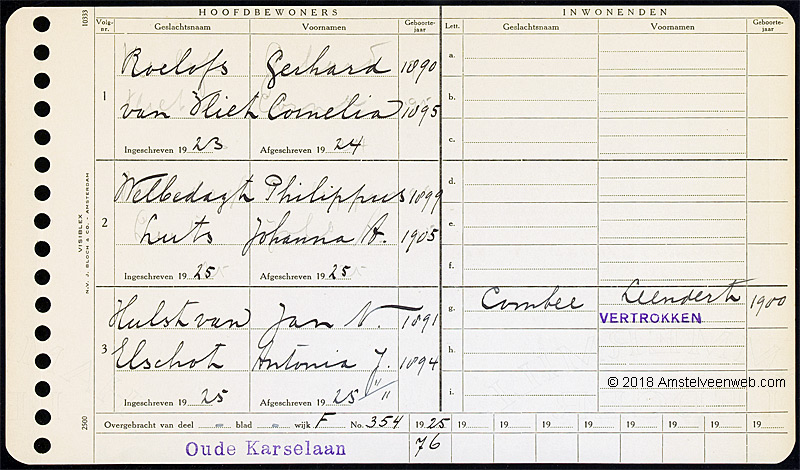 HOOFDBEWONERS INWONENDEN
10333 Volg-nr. Geslachtsnaam Voornamen Geboorte-jaar Lett. Geslachtsnaam Voornamen Geboorte-jaar
Roelofs Gerhard 1890 a.
1 van Vliet Cornelia 1895 b.
c.
Ingeschreven 1923 Afgeschreven 1924
Welbedagt Philippus 1899 d.
2 Luts Johanna A. 1905 e.
f.
Ingeschreven 1925 Afgeschreven 1925
Hulst van Jan N. 1891 g. Combee Leendert 1900
VERTROKKEN
3 Elschot Antonia J. 1894 h.
Ingeschreven 1925 Afgeschreven 1925 " " i.
© 2018 Amstelveenweb.com
VISIBLEX
N.V. J. BLOCH & CO. - AMSTERDAM
2500 Overgebracht van deel blad wijk F No. 354 1925 19 19 19 19 19 19 19 19
Oude Karselaan 76